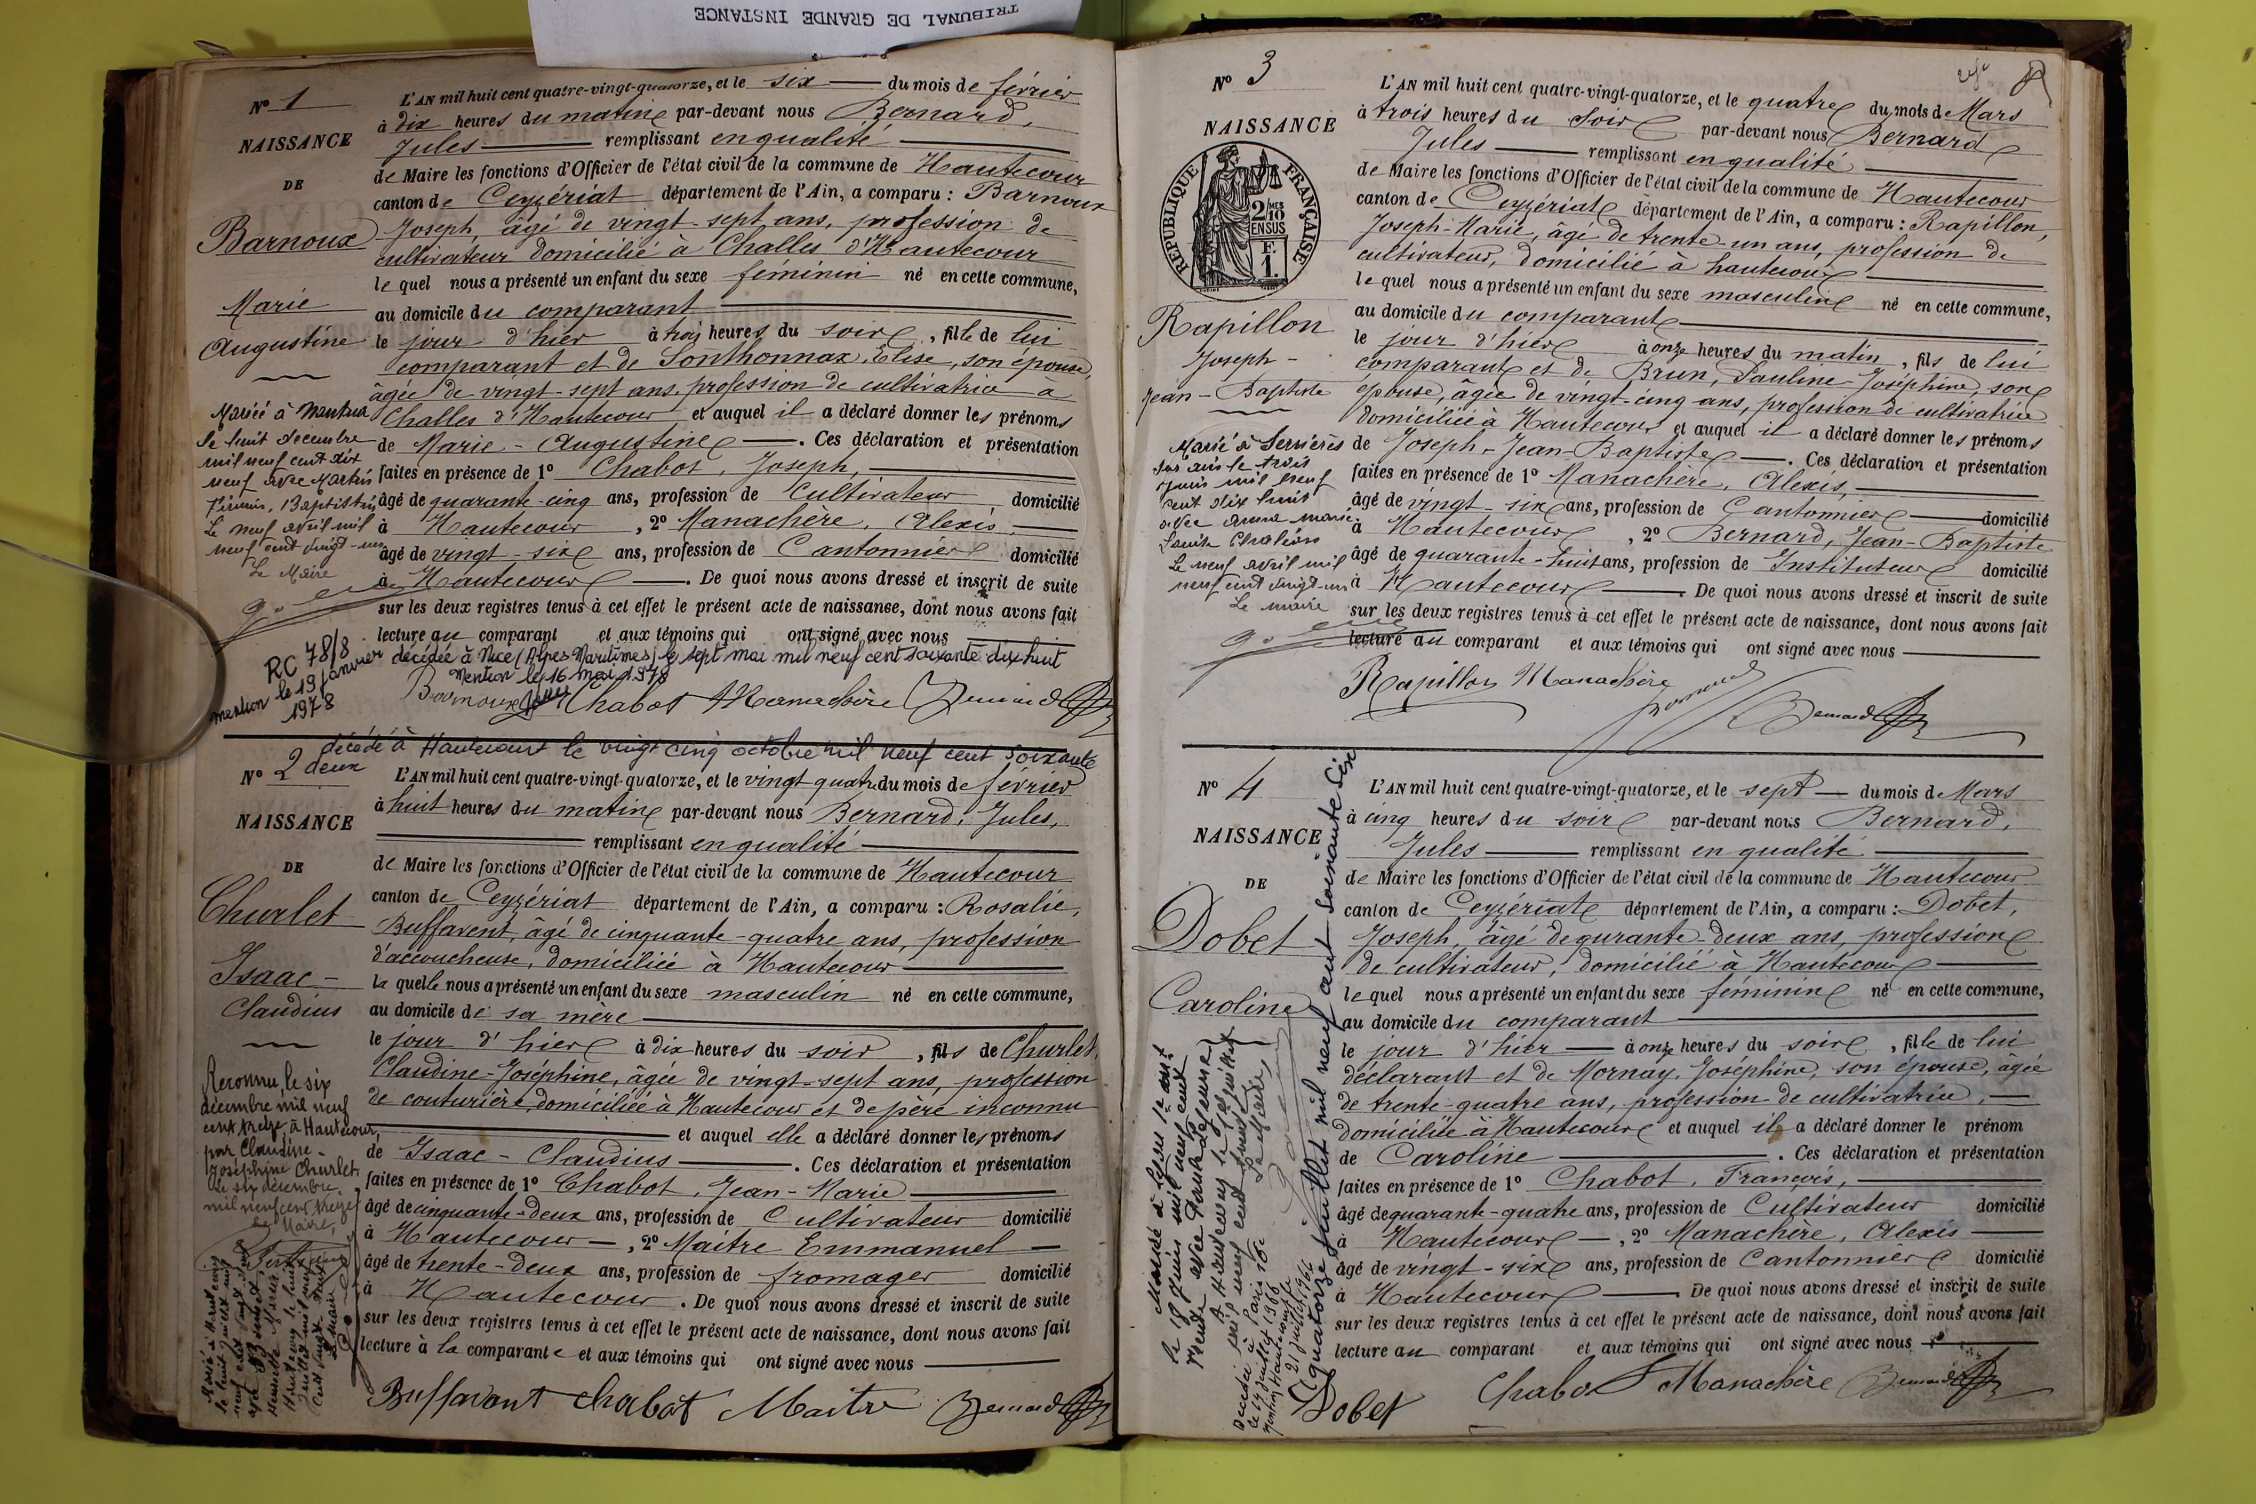 TRIBUNAL DE GRANDE INSTANCE
N° 1
NAISSANCE
DE
Barnoux
Marie
Augustine
Mariée à Nantua
le huit decembre
mil neuf cent dix
neuf avec Martin
Firmin, Baptistin
Le neuf avril mil
neuf cent vingt-un
Le Maire
RC 78/8
mention le 19 janvier
1978
L'AN mil huit cent quatre-vingt-quatorze, et le six du mois de février
à dix heures du matin par-devant nous Bernard,
Jules remplissant en qualité
de Maire les fonctions d'Officier de l'état civil de la commune de Hautecour
canton de Ceyzériat département de l'Ain, a comparu : Barnoux
Joseph, âgé de vingt-sept ans, profession de
cultivateur domicilié à Challes d'Hautecour
lequel nous a présenté un enfant du sexe féminin né en cette commune,
au domicile du comparant
le jour d'hier à trois heures du soir, fille de lui
comparant et de Sonthonnax, Elise, son épouse,
âgée de vingt-sept ans, profession de cultivatrice à
Challes d'Hautecour et auquel il a déclaré donner les prénoms
de Marie-Augustine. Ces déclaration et présentation
faites en présence de 1° Chabot, Joseph,
âgé de quarante-cinq ans, profession de Cultivateur domicilié
à Hautecour, 2° Manachère, Alexis
âgé de vingt-six ans, profession de Cantonnier domicilié
à Hautecour. De quoi nous avons dressé et inscrit de suite
sur les deux registres tenus à cet effet le présent acte de naissance, dont nous avons fait
lecture au comparant et aux témoins qui ont signé avec nous
décédée à Nice (Alpes Maritimes) le sept mai mil neuf cent soixante dix huit
Mention le 16 mai 1978
Barnoux Chabot Manachère Bernard
décédé à Hautecourt le vingt cinq octobre mil neuf cent soixante
deux
N° 2
NAISSANCE
DE
Churlet
Isaac-
Claudius
Reconnu, le six
décembre mil neuf
cent treize, à Hautecour,
par Claudine-
Joséphine Churlet.
Le six décembre
mil neuf cent treize
Le Maire,
L'AN mil huit cent quatre-vingt-quatorze, et le vingt quatre du mois de février
à huit heures du matin par-devant nous Bernard, Jules,
remplissant en qualité
de Maire les fonctions d'Officier de l'état civil de la commune de Hautecour
canton de Ceyzériat département de l'Ain, a comparu : Rosalie,
Buffavent, âgé de cinquante-quatre ans, profession
d'accoucheuse, domiciliée à Hautecour
laquelle nous a présenté un enfant du sexe masculin né en cette commune,
au domicile de sa mère
le jour d'hier à dix heures du soir, fils de Churlet,
Claudine-Joséphine, âgée de vingt-sept ans, profession
de couturière, domiciliée à Hautecour et de père inconnu
et auquel elle a déclaré donner les prénoms
de Isaac-Claudius. Ces déclaration et présentation
faites en présence de 1° Chabot, Jean-Marie
âgé de cinquante-deux ans, profession de Cultivateur domicilié
à Hautecour, 2° Maître Emmanuel
âgé de trente-deux ans, profession de fromager domicilié
à Hautecour. De quoi nous avons dressé et inscrit de suite
sur les deux registres tenus à cet effet le présent acte de naissance, dont nous avons fait
lecture à la comparante et aux témoins qui ont signé avec nous
Buffavant Chabot Maitre Bernard
N° 3
NAISSANCE
RÉPUBLIQUE FRANÇAISE
2 MES
10
EN SUS
F.
1.
Rapillon
Joseph-
Jean-Baptiste
Marié à Serrières
sur ain le trois
Juin mil neuf
cent dix huit
avec Anna Marie
Le neuf avril mil
neuf cent vingt-un
Le maire
L'AN mil huit cent quatre-vingt-quatorze, et le quatre du mois de Mars
à trois heures du soir par-devant nous Bernard
Jules remplissant en qualité
de Maire les fonctions d'Officier de l'état civil de la commune de Hautecour
canton de Ceyzériat département de l'Ain, a comparu : Rapillon,
Joseph-Marie, âgé de trente-un ans, profession de
cultivateur, domicilié à hautecour
lequel nous a présenté un enfant du sexe masculin né en cette commune,
au domicile du comparant
le jour d'hier à onze heures du matin, fils de lui
comparant et de Brun, Pauline-Joséphine, son
épouse, âgée de vingt-cinq ans, profession de cultivatrice
domiciliée à Hautecour et auquel il a déclaré donner les prénoms
de Joseph-Jean-Baptiste. Ces déclaration et présentation
faites en présence de 1° Manachère, Alexis,
âgé de vingt-six ans, profession de Cantonnier domicilié
à Hautecour, 2° Bernard, Jean-Baptiste
âgé de quarante-huit ans, profession de Instituteur domicilié
à Hautecour. De quoi nous avons dressé et inscrit de suite
sur les deux registres tenus à cet effet le présent acte de naissance, dont nous avons fait
lecture au comparant et aux témoins qui ont signé avec nous
Rapillon Manachère Bernard
N° 4
NAISSANCE
DE
Dobet
Caroline
Décédée à Paris 16e
le 14 Juillet 1966
quatorze juillet mil neuf cent soixante six
L'AN mil huit cent quatre-vingt-quatorze, et le sept du mois de Mars
à cinq heures du soir par-devant nous Bernard,
Jules remplissant en qualité
de Maire les fonctions d'Officier de l'état civil de la commune de Hautecour
canton de Ceyzériat département de l'Ain, a comparu : Dobet,
Joseph, âgé de qurante-deux ans, profession
de cultivateur, domicilié à Hautecour
lequel nous a présenté un enfant du sexe féminin né en cette commune,
au domicile du comparant
le jour d'hier à onze heures du soir, fille de lui
déclarant et de Mornay, Joséphine, son épouse, âgée
de trente-quatre ans, profession de cultivatrice,
domiciliée à Hautecour et auquel il a déclaré donner le prénom
de Caroline. Ces déclaration et présentation
faites en présence de 1° Chabot, François,
âgé de quarante-quatre ans, profession de Cultivateur domicilié
à Hautecour, 2° Manachère, Alexis
âgé de vingt-six ans, profession de Cantonnier domicilié
à Hautecour. De quoi nous avons dressé et inscrit de suite
sur les deux registres tenus à cet effet le présent acte de naissance, dont nous avons fait
lecture au comparant et aux témoins qui ont signé avec nous
Dobet Chabot Manachère Bernard